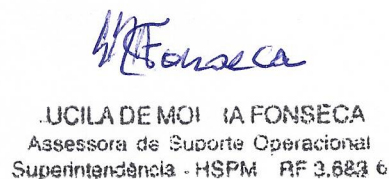 Fonseca
.UCILA DE MOI IA FONSECA
Assessora de Suporte Operacional
Superintendência - HSPM RF 3.683 6